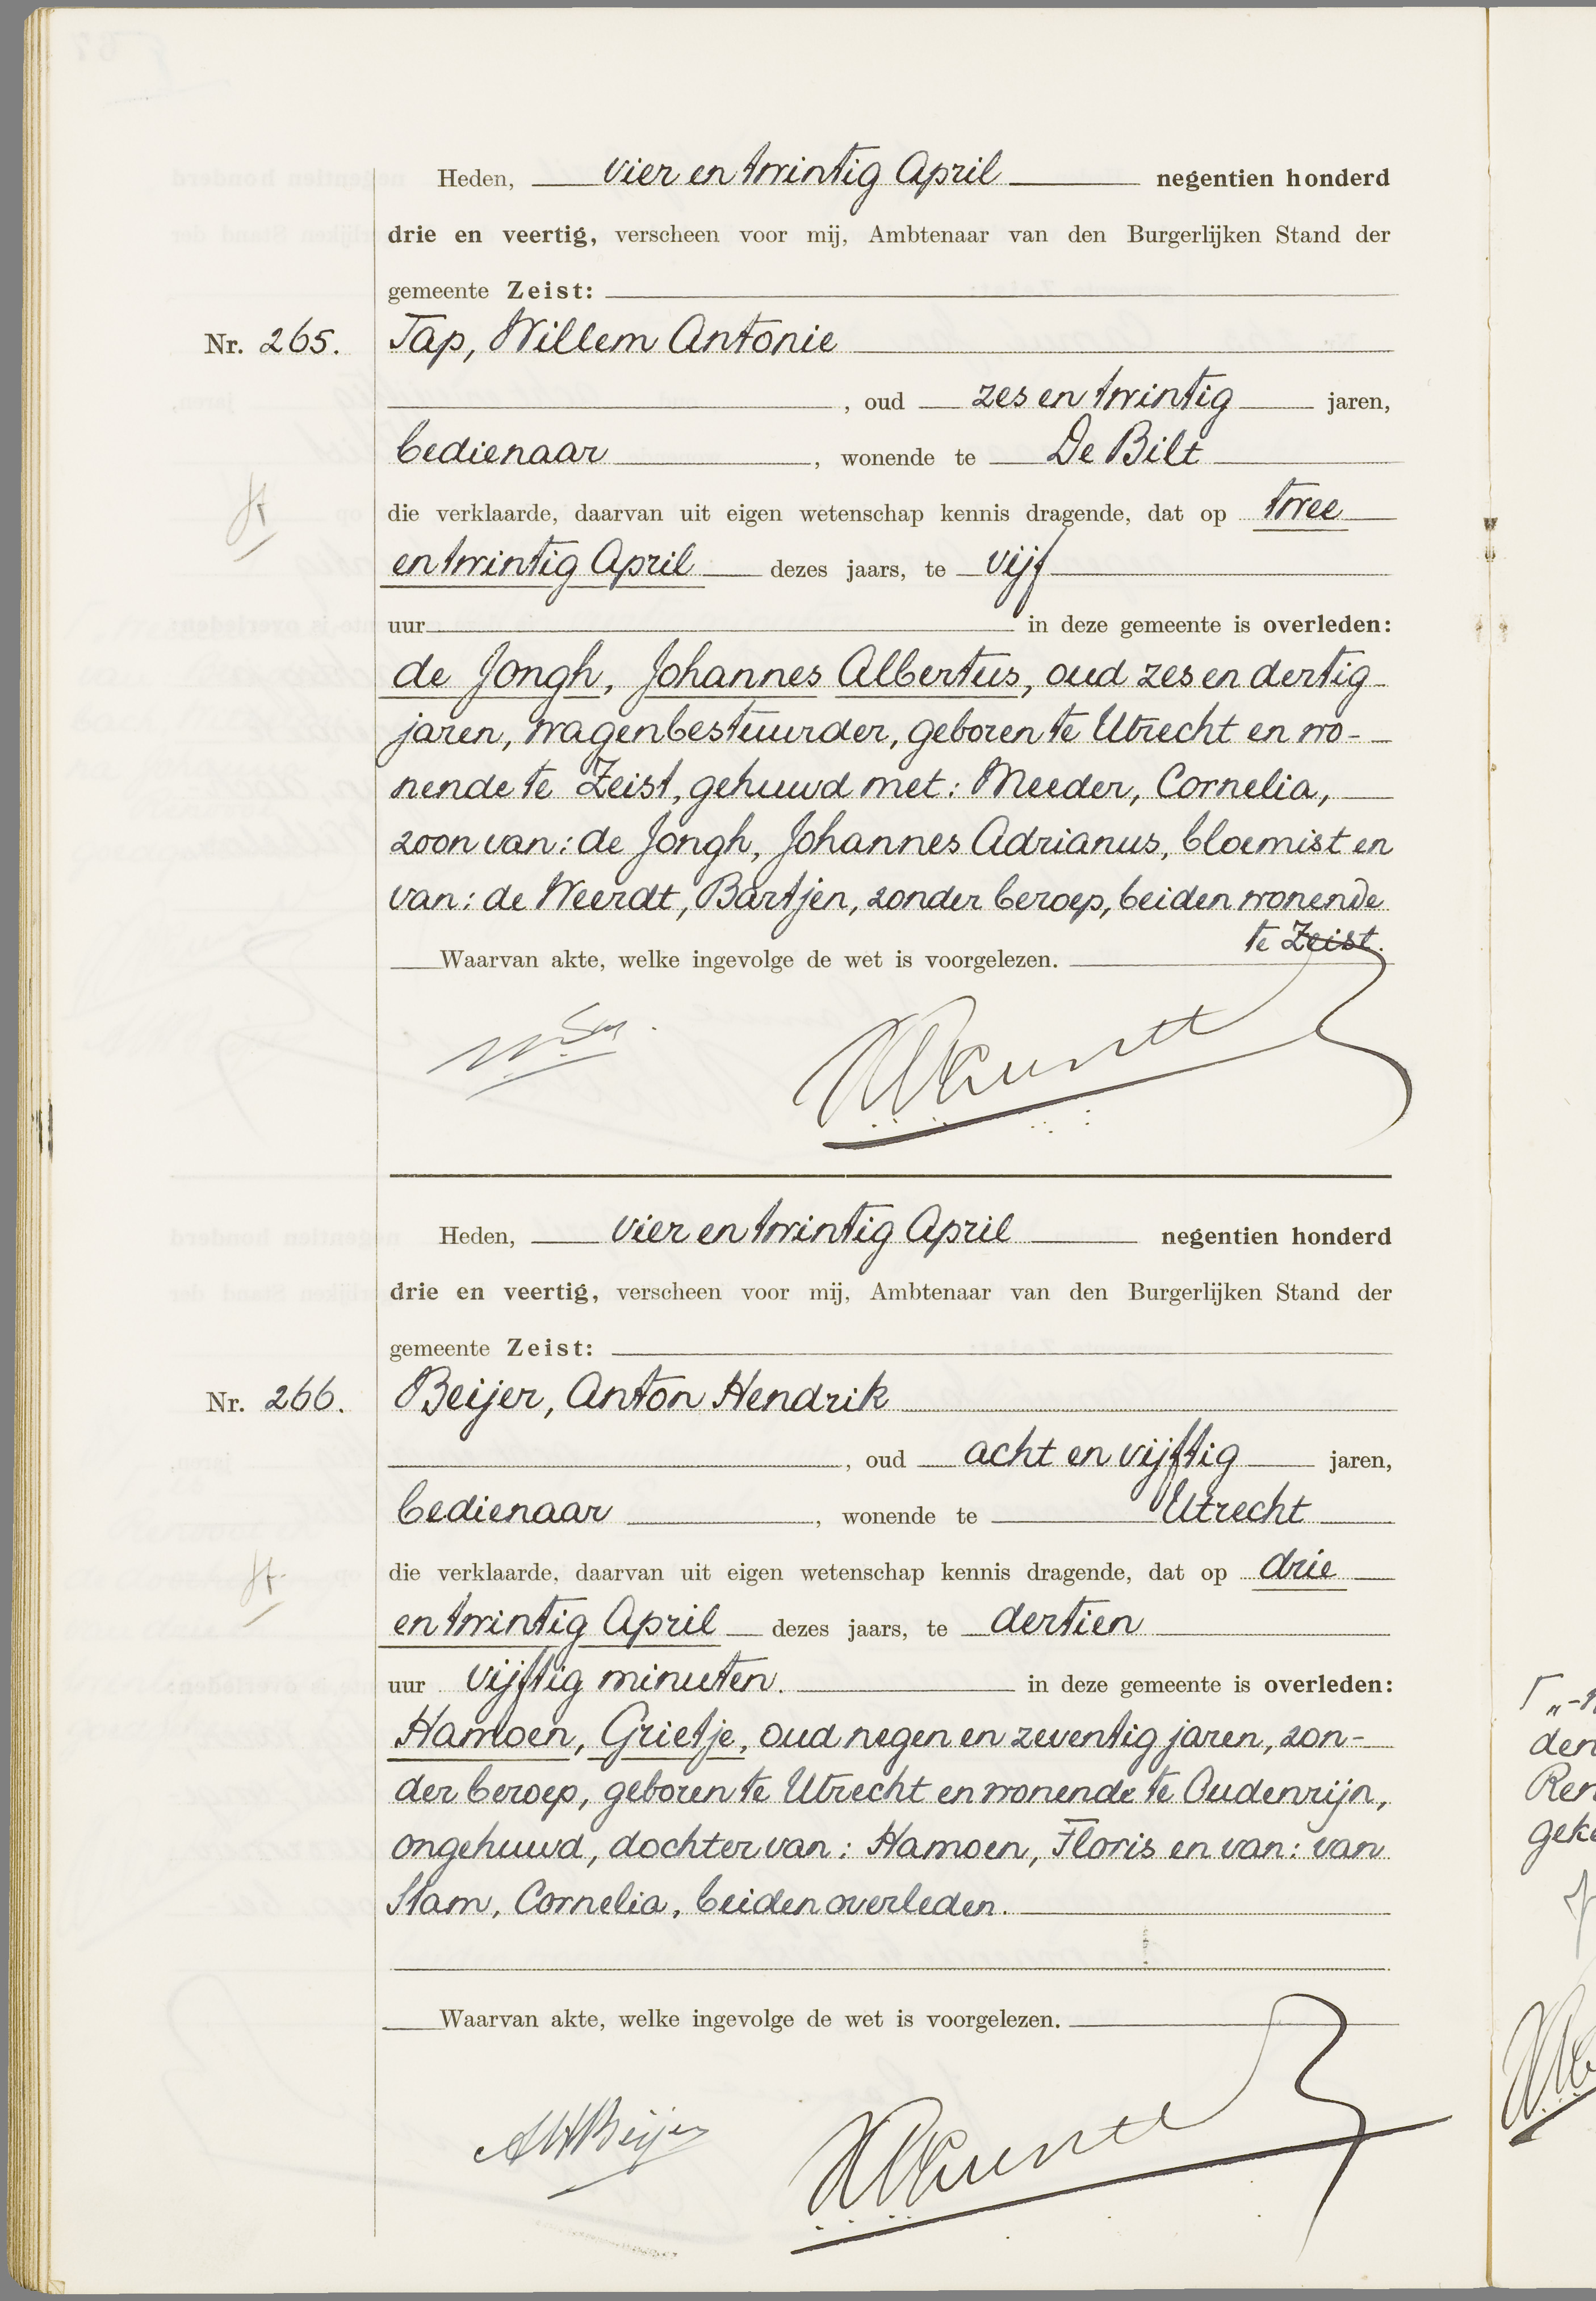 Heden, vier en twintig April negentien honderd
drie en veertig, verscheen voor mij, Ambtenaar van den Burgerlijken Stand der
gemeente Zeist:
Nr. 265. Tap, Willem Antonie
, oud zes en twintig jaren,
bedienaar, wonende te De Bilt
die verklaarde, daarvan uit eigen wetenschap kennis dragende, dat op twee
en twintig April dezes jaars, te vijf
uur in deze gemeente is overleden:
de Jongh, Johannes Albertus, oud zes en dertig
jaren, wagenbestuurder, geboren te Utrecht en wo-
nende te Zeist, gehuwd met: Meeder, Cornelia,
zoon van: de Jongh, Johannes Adrianus, bloemist en
van: de Weerdt, Bartjen, zonder beroep, beiden wonende
te Zeist.
Waarvan akte, welke ingevolge de wet is voorgelezen.
Heden, vier en twintig April negentien honderd
drie en veertig, verscheen voor mij, Ambtenaar van den Burgerlijken Stand der
gemeente Zeist:
Nr. 266. Beijer, Anton Hendrik
, oud acht en vijftig jaren,
bedienaar, wonende te Utrecht
die verklaarde, daarvan uit eigen wetenschap kennis dragende, dat op drie
en twintig April dezes jaars, te dertien
uur vijftig minuten. in deze gemeente is overleden:
Hamoen, Grietje, oud negen en zeventig jaren, zon-
der beroep, geboren te Utrecht en wonende te Oudenrijn,
ongehuwd, dochter van: Hamoen, Floris en van: van
Stam, Cornelia, beiden overleden.
Waarvan akte, welke ingevolge de wet is voorgelezen.
AHBeijer